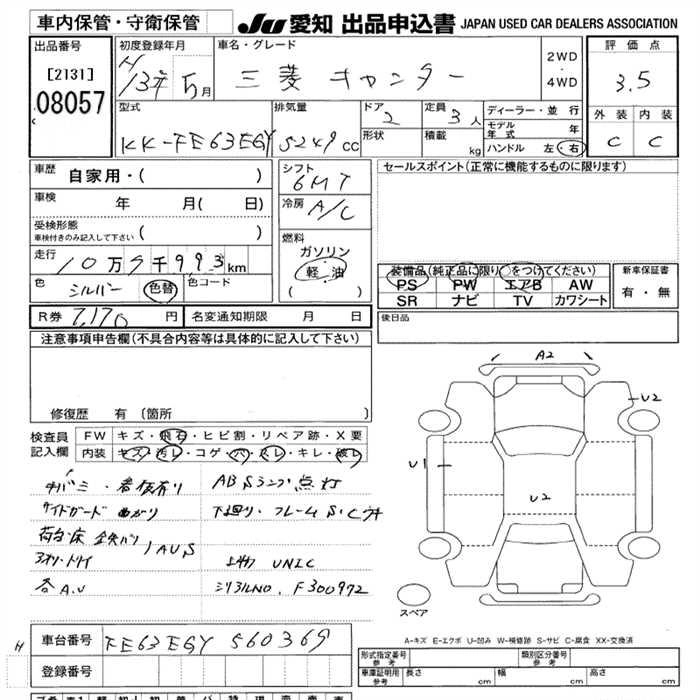 車内保管・守衛保管
JU 愛知 出品申込書 JAPAN USED CAR DEALERS ASSOCIATION
出品番号
[2131]
08057
初度登録年月
H 13年 5月
車名・グレード
三菱 キャンター
2WD
・
4WD
評価点
3.5
外装 内装
C C
型式
KK-FE63EGY
排気量
5249 cc
ドア
2
定員
3人
形状
積載
kg
ディーラー・並行
モデル年式 年
ハンドル 左・右
車歴
自家用・( )
車検
年 月( 日)
受検形態
車検付きのみ記入して下さい ( )
走行
10万 千993km
色
シルバー 色替
色コード
R券 7,170 円
名変通知期限 月 日
シフト
6MT
冷房
A/C
燃料
ガソリン
軽・油
( )
セールスポイント(正常に機能するものに限ります)
装備品(純正品に限り○をつけてください)
PS PW エアB AW
SR ナビ TV カワシート
新車保証書
有・無
後日品
注意事項申告欄(不具合内容等は具体的に記入して下さい)
修復歴 有(箇所 )
検査員
記入欄
FW キズ・飛石・ヒビ割・リペア跡・X要
内装 キズ・汚レ・コゲ・穴・スレ・キレ・破レ
看板有り
ABSランプ点灯
サイドガード 曲がり
下廻り・フレームS・C
荷台・床
上物 UNIC
アオリ・トリイ
各A.U
シリアルNO. F300972
A2
U2
U1
U2
スペア
A-キズ E-エクボ U-凹み W-補修跡 S-サビ C-腐食 XX-交換済
車台番号 FE63EGY 560369
登録番号
形式指定番号
参考
類別区分番号
参考
車庫寸法
参考
長さ cm
幅 cm
高さ cm